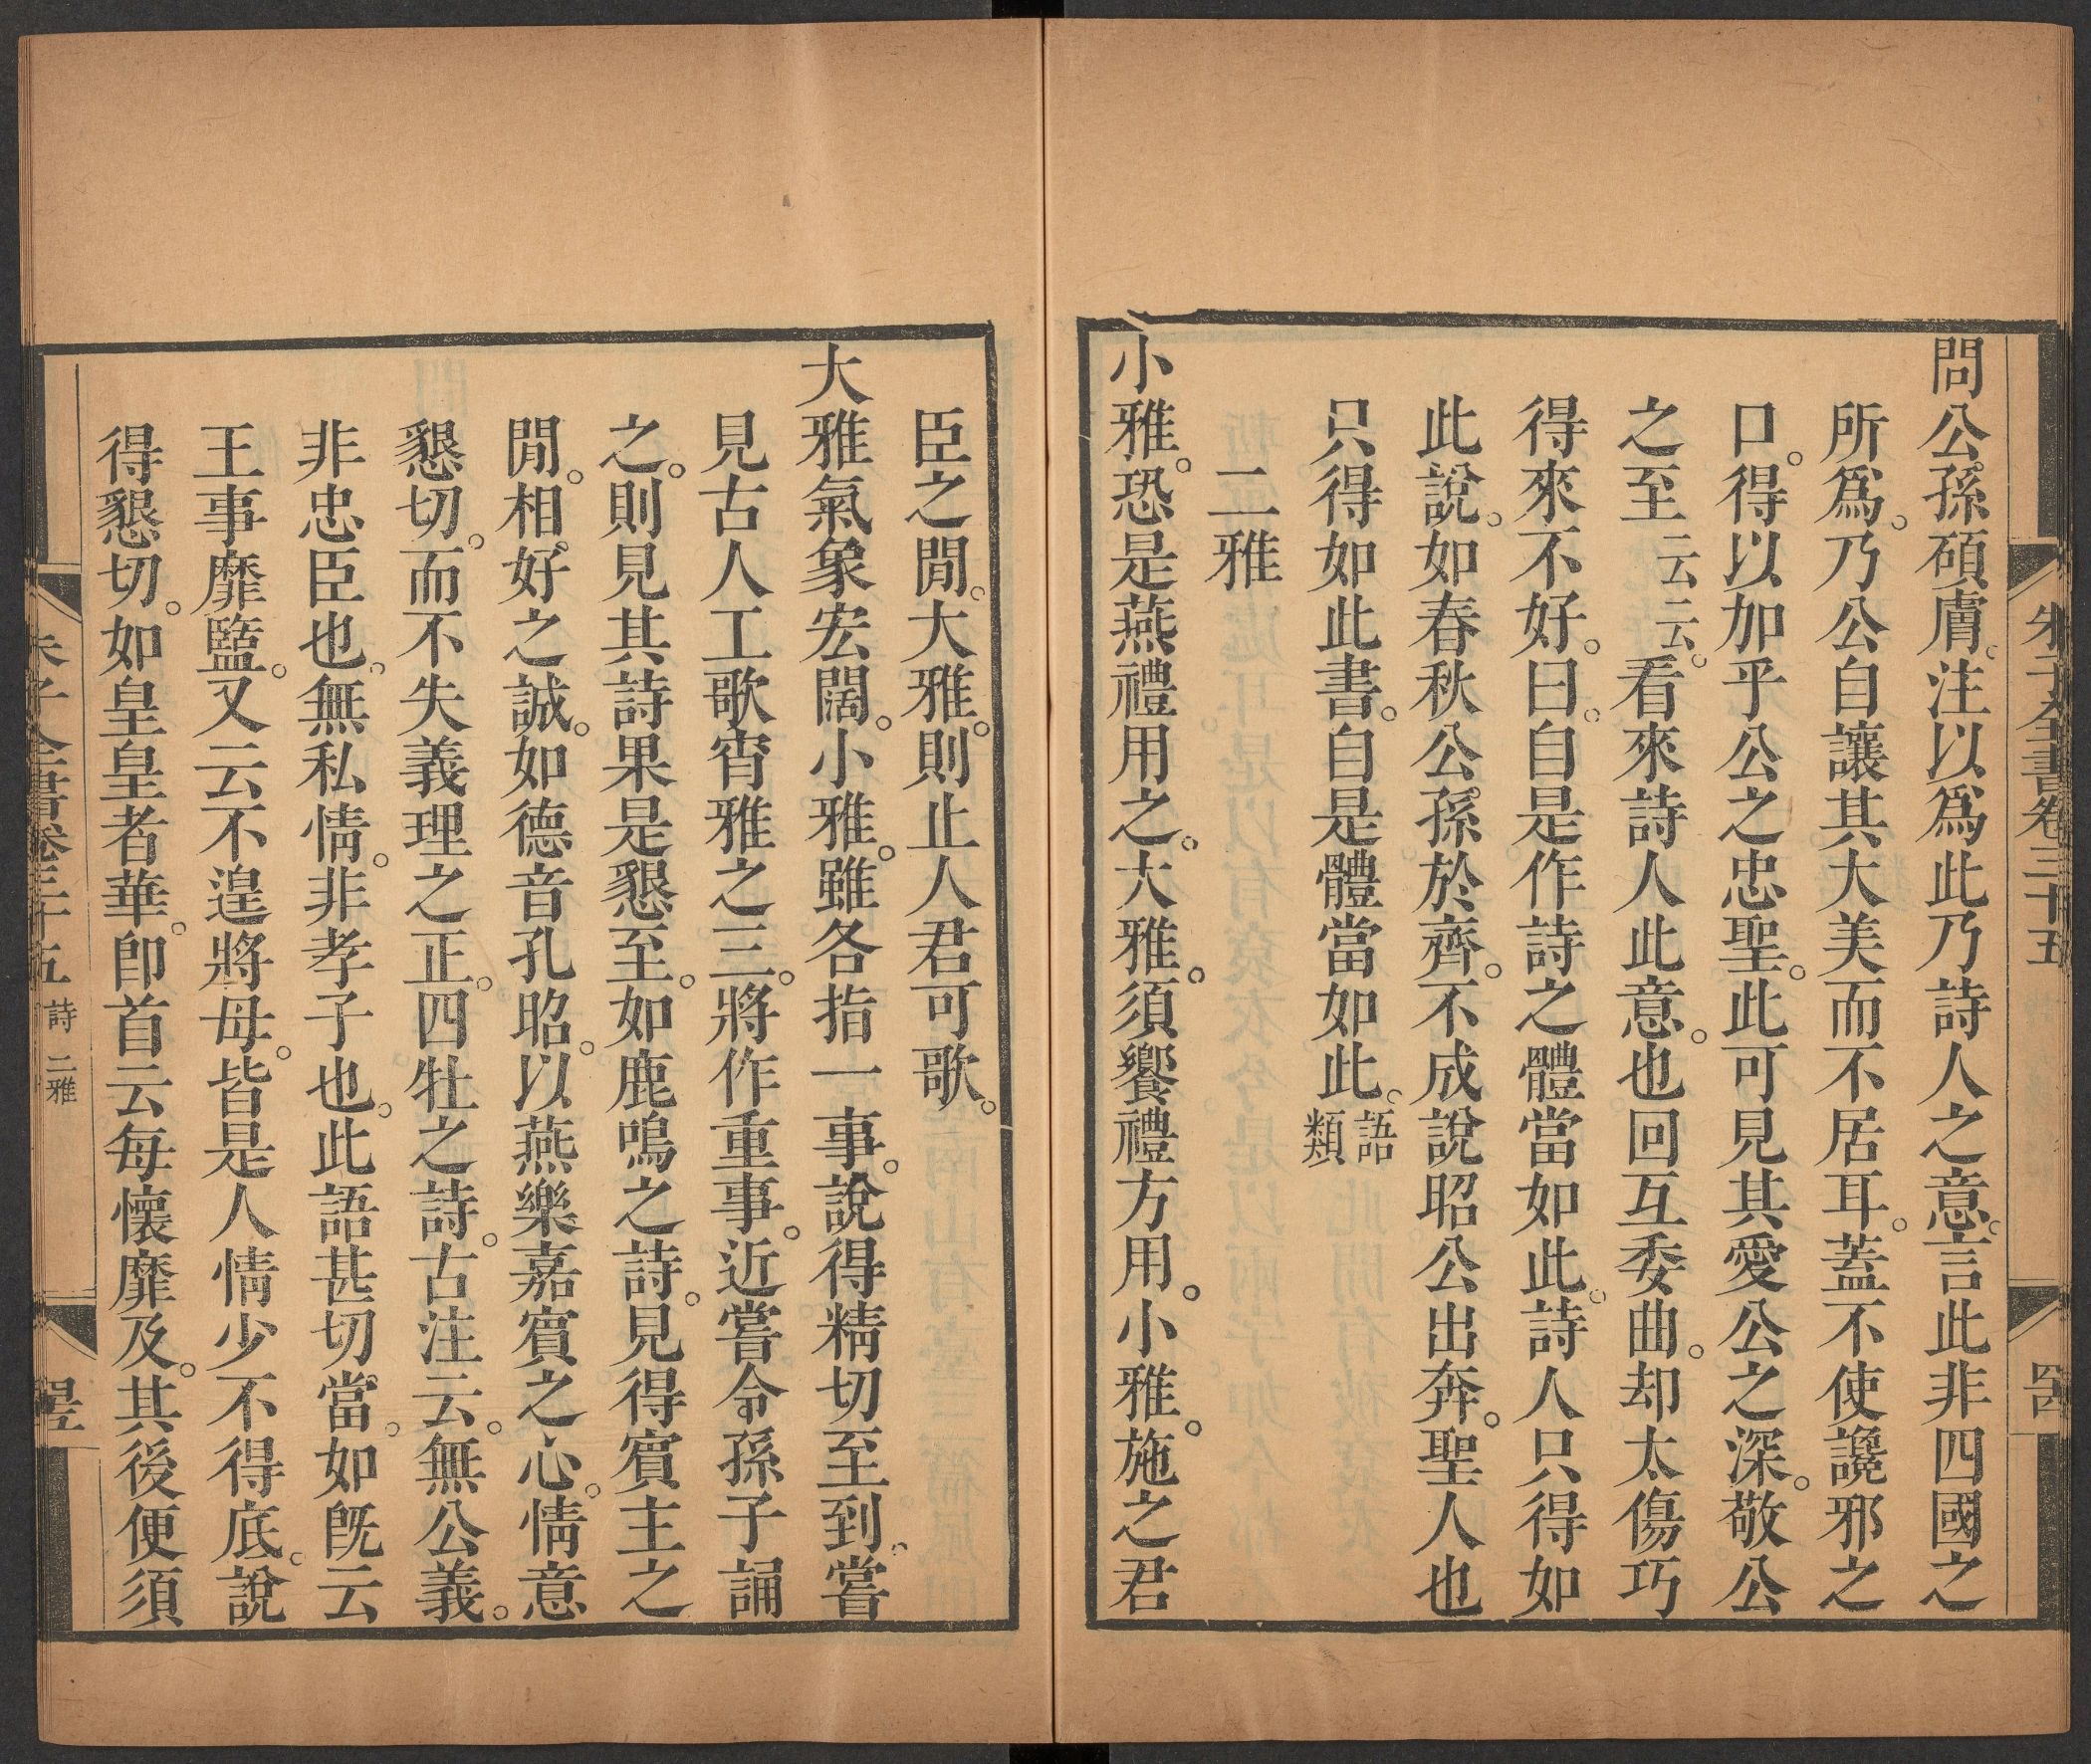 朱子全書卷三十五
問公孫碩膚。注以爲此乃詩人之意。言此非四國之
所爲。乃公自讓其大美而不居耳。蓋不使讒邪之
口。得以加乎公之忠聖。此可見其愛公之深。敬公
之至云云。看來詩人此意。也回互委曲。却太傷巧
得來不好。曰。自是作詩之體當如此。詩人只得如
此說。如春秋公孫於齊。不成說昭公出奔。聖人也
只得如此書。自是體當如此。語類
二雅
小雅。恐是燕禮用之。大雅。須饗禮方用。小雅。施之君
臣之閒。大雅。則止人君可歌。
大雅氣象宏闊。小雅。雖各指一事。說得精切至到。嘗
見古人工歌宵雅之三。將作重事。近嘗令孫子誦
之。則見其詩果是懇至。如鹿鳴之詩。見得賓主之
閒。相好之誠。如德音孔昭。以燕樂嘉賓之心。情意
懇切。而不失義理之正。四牡之詩。古注云。無公義。
非忠臣也。無私情。非孝子也。此語甚切當。如既云
王事靡盬。又云不遑將母。皆是人情少不得底。說
得懇切。如皇皇者華。卽首云每懷靡及。其後便須
朱子全書卷三十五 詩 二雅